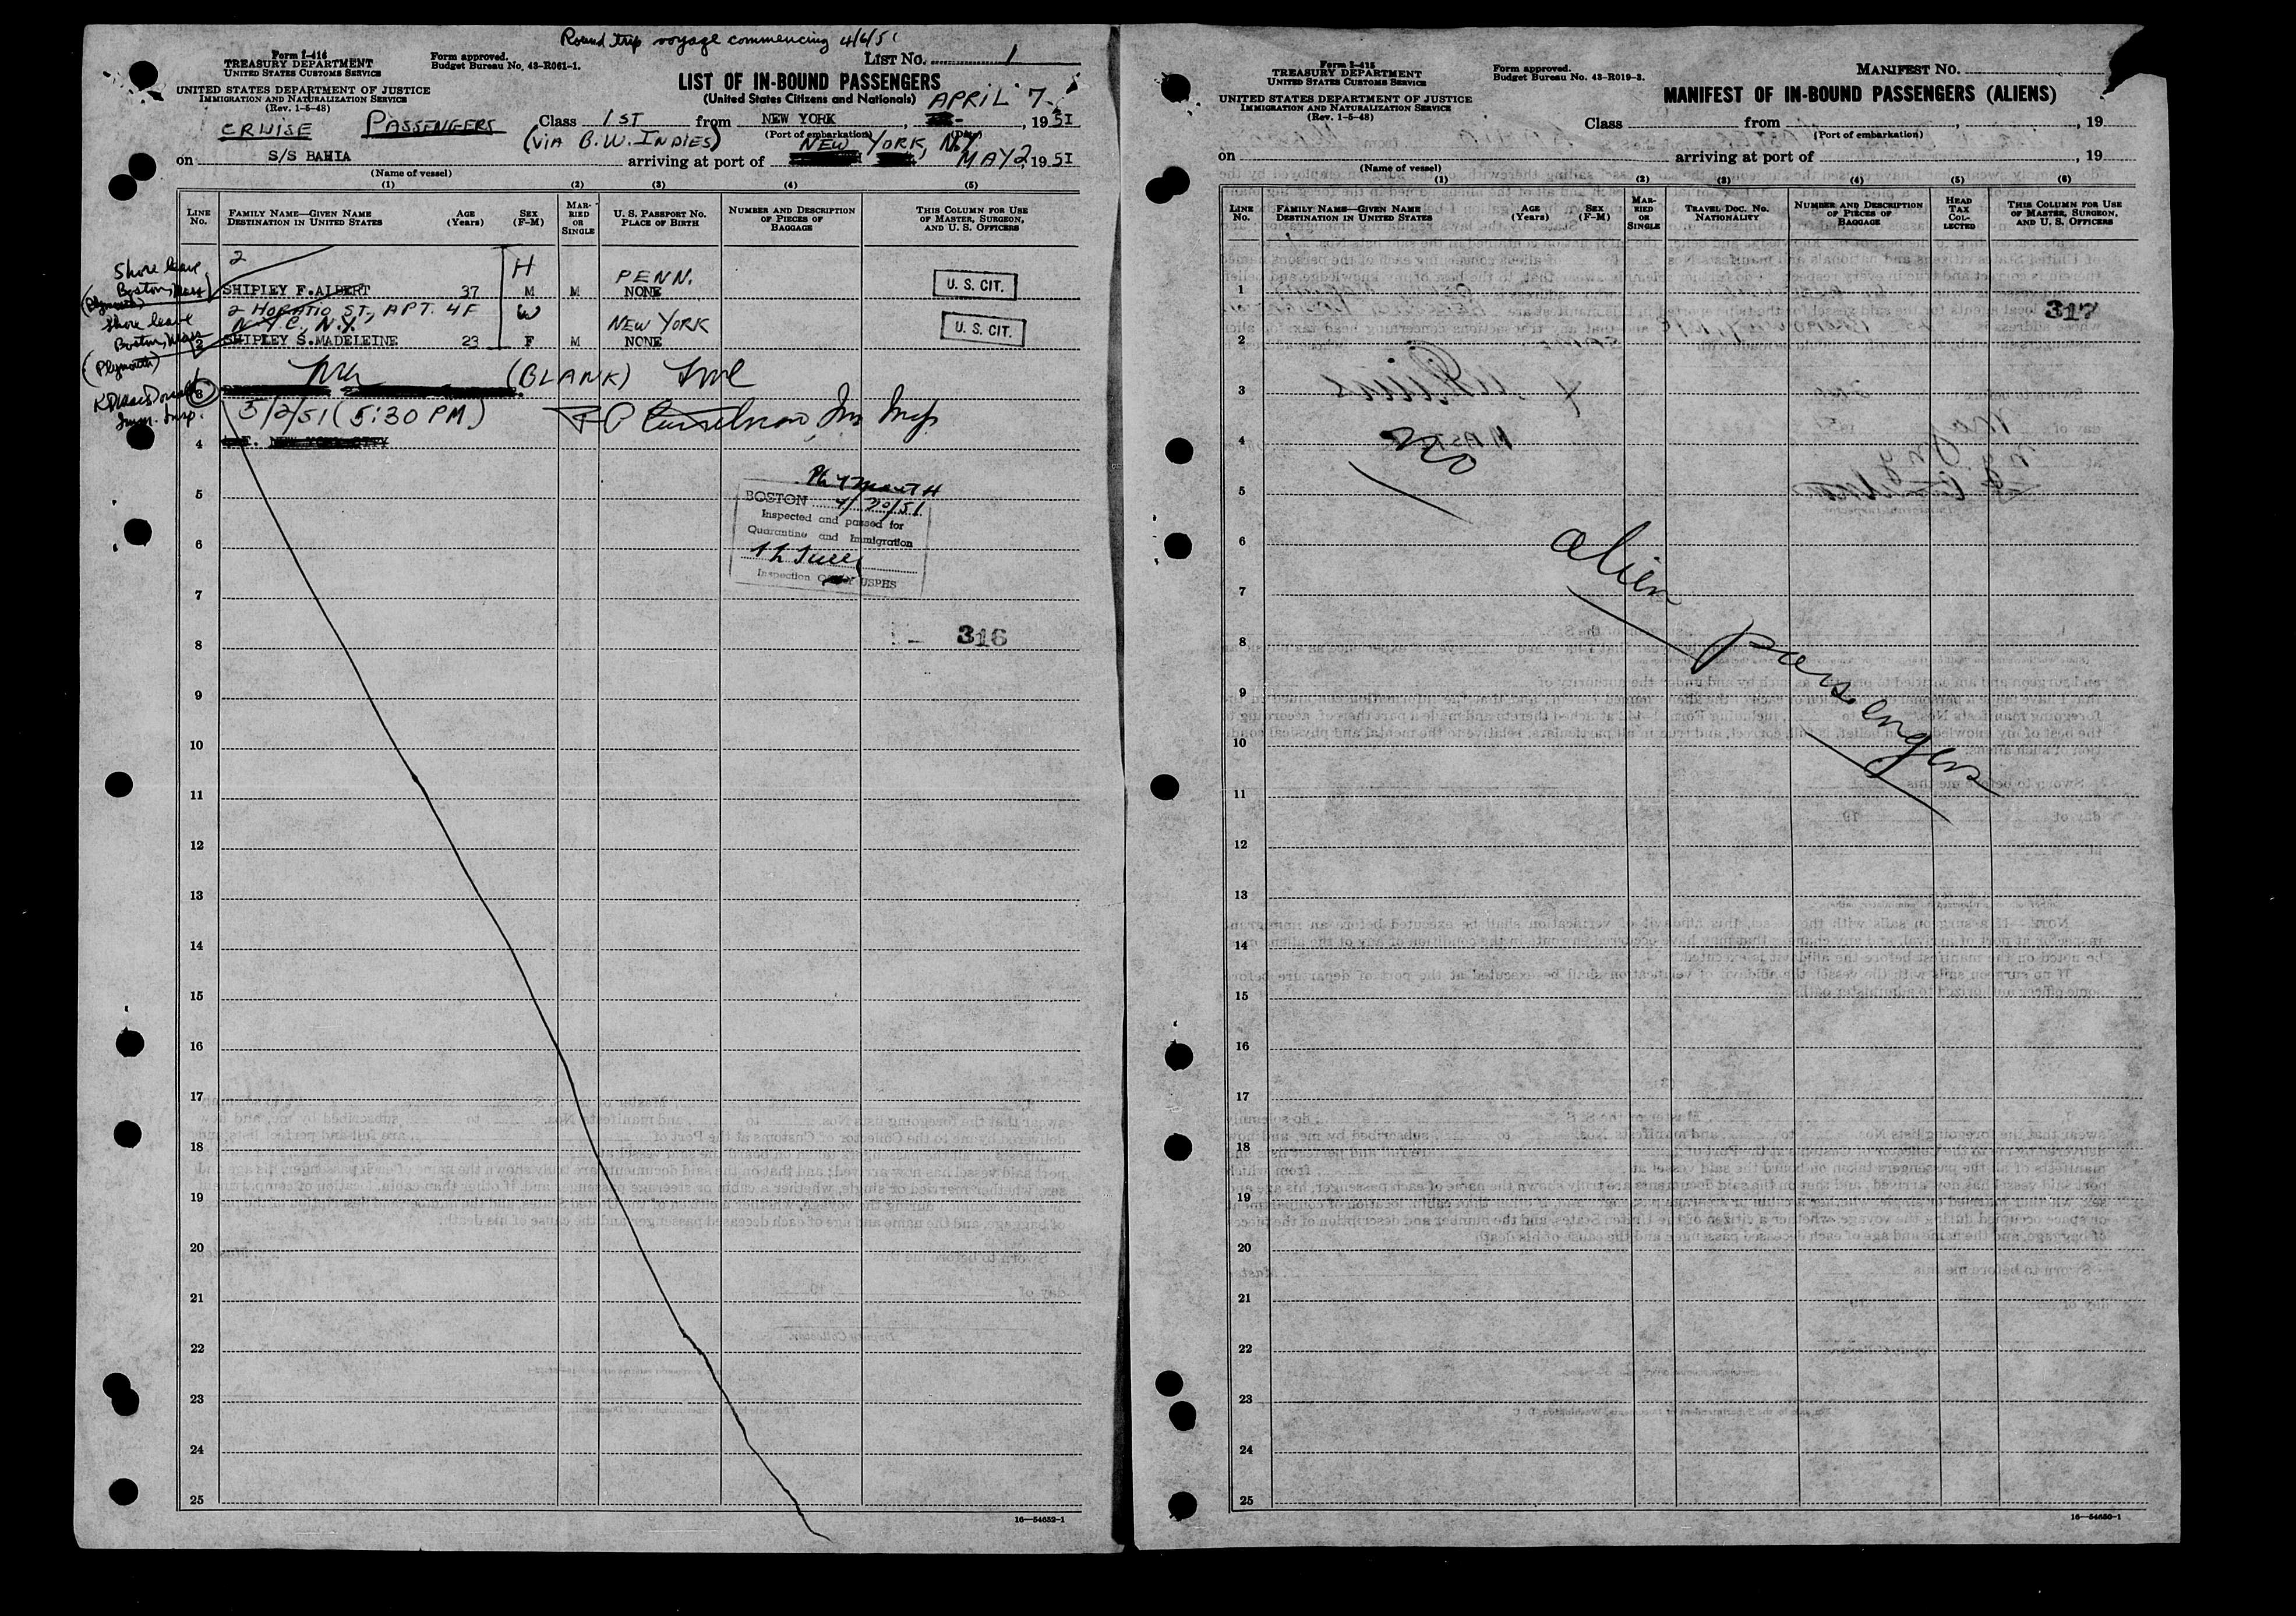 Round trip voyage commencing 4/6/51
Form I-416
TREASURY DEPARTMENT
UNITED STATES CUSTOMS SERVICE
Form approved.
Budget Bureau No. 43-R061-1.
LIST NO. 1
UNITED STATES DEPARTMENT OF JUSTICE
IMMIGRATION AND NATURALIZATION SERVICE
(Rev. 1-5-48)
LIST OF IN-BOUND PASSENGERS
(United States Citizens and Nationals)
CRUISE PASSENGERS Class 1ST from NEW YORK, APRIL 7-, 1951
(VIA B.W. INDIES) (Port of embarkation) (Date)
on S/S BAHIA arriving at port of NEW YORK, N.Y. MAY 2, 1951
(Name of vessel)
(1) (2) (3) (4) (5)
LINE No. FAMILY NAME—GIVEN NAME DESTINATION IN UNITED STATES AGE (Years) SEX (F-M) MARRIED OR SINGLE U. S. PASSPORT NO. PLACE OF BIRTH NUMBER AND DESCRIPTION OF PIECES OF BAGGAGE THIS COLUMN FOR USE OF MASTER, SURGEON, AND U. S. OFFICERS
2
Shore leave H PENN.
Boston, Mass SHIPLEY F. ALBERT 37 M M NONE U. S. CIT.
(Plymouth) 2 HORATIO ST., APT. 4F W
Shore leave N.Y.C., N.Y. NEW YORK
Boston, Mass 2 SHIPLEY S. MADELEINE 23 F M NONE U. S. CIT.
(Plymouth)
(BLANK)
3
Imm. Insp. 5/2/51 (5:30 PM)
4 NEW YORK CITY
Plymouth
5 BOSTON 4/30/51
Inspected and passed for
6 Quarantine and Immigration
Inspection USPHS
7
316
8
9
10
11
12
13
14
15
16
17
18
19
20
21
22
23
24
25
16—54652-1
Form I-415
TREASURY DEPARTMENT
UNITED STATES CUSTOMS SERVICE
Form approved.
Budget Bureau No. 43-R019-3.
MANIFEST NO.
UNITED STATES DEPARTMENT OF JUSTICE
IMMIGRATION AND NATURALIZATION SERVICE
(Rev. 1-5-48)
MANIFEST OF IN-BOUND PASSENGERS (ALIENS)
Class from , , 19
(Port of embarkation)
on arriving at port of , 19
(Name of vessel)
(1) (2) (3) (4) (5) (6)
LINE No. FAMILY NAME—GIVEN NAME DESTINATION IN UNITED STATES AGE (Years) SEX (F-M) MARRIED OR SINGLE TRAVEL DOC. NO. NATIONALITY NUMBER AND DESCRIPTION OF PIECES OF BAGGAGE HEAD TAX COLLECTED THIS COLUMN FOR USE OF MASTER, SURGEON, AND U. S. OFFICERS
1
317
2
3
4 No
5
6 alien
7
8 passengers
9
10
11
12
13
14
15
16
17
18
19
20
21
22
23
24
25
16—54650-1